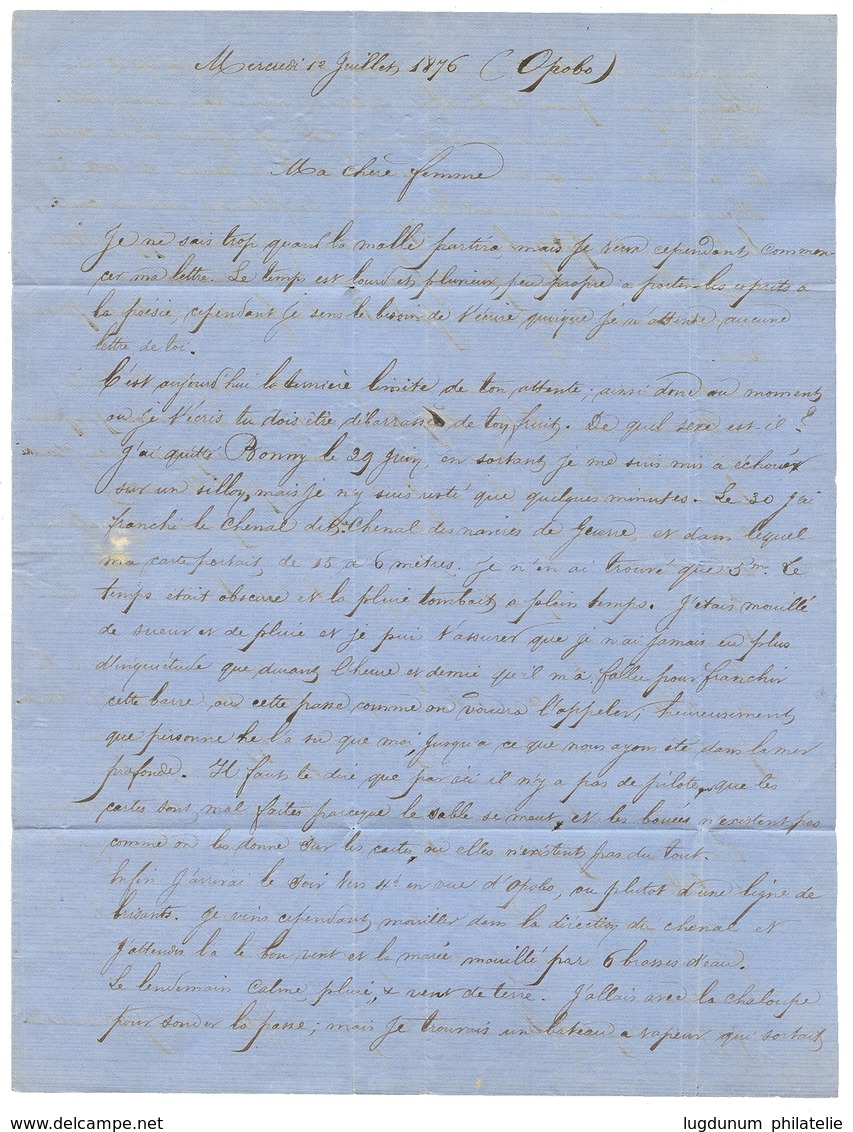 Mercredi 12 Juillet 1876 (Opobo)
Ma chère femme
Je ne sais trop quand la malle partira mais je veux cependant commen-
cer ma lettre. Le temps est lourd et pluvieux, peu propre a porter les esprits a
la poésie, cependant je sens le besoin de t'écrire quoique je n'attende aucune
lettre de toi.
C'est aujourd'hui la dernière limite de ton attente; ainsi donc au moment
ou je t'écris tu dois être débarrassée de ton fruit. De quel sexe est-il?
J'ai quitté Bonny le 29 Juin, en sortant je me suis mis a échouer
sur un sillon, mais je n'y suis resté que quelques minutes. Le 30 j'ai
franchi le chenal dit Chenal des navires de Guerre, et dans lequel
ma carte portait de 15 a 6 mètres. Je n'en ai trouvé que 5m. Le
temps était obscure et la pluie tombait a plein temps. J'étais mouillé
de sueur et de pluie et je puis t'assurer que je n'ai jamais eu plus
d'inquiétude que durant l'heure et demie qu'il m'a fallu pour franchir
cette barre ou cette passe comme on voudra l'appeler, heureusement
que personne ne l'a su que moi, jusqu'a ce que nous ayons été dans la mer
profonde. Il faut te dire que par ici il n'y a pas de pilote, que les
cartes sont mal faites parceque le sable se meut, et les bouées n'existent pas
comme on les donne sur les cartes, ou elles n'existent pas du tout.
Enfin j'arrivai le soir vers 4h en vue d'Opobo, ou plutot d'une ligne de
brisants. Je vins cependant mouiller dans la direction du chenal et
j'attendis la le bon vent et la marée mouillé par 6 brasses d'eau.
Le lendemain calme, pluie, & vent de terre. J'allais avec la chaloupe
pour sonder la passe; mais je trouvais un bateau a vapeur qui sortait
delcampe.net
lugdunum philatelie